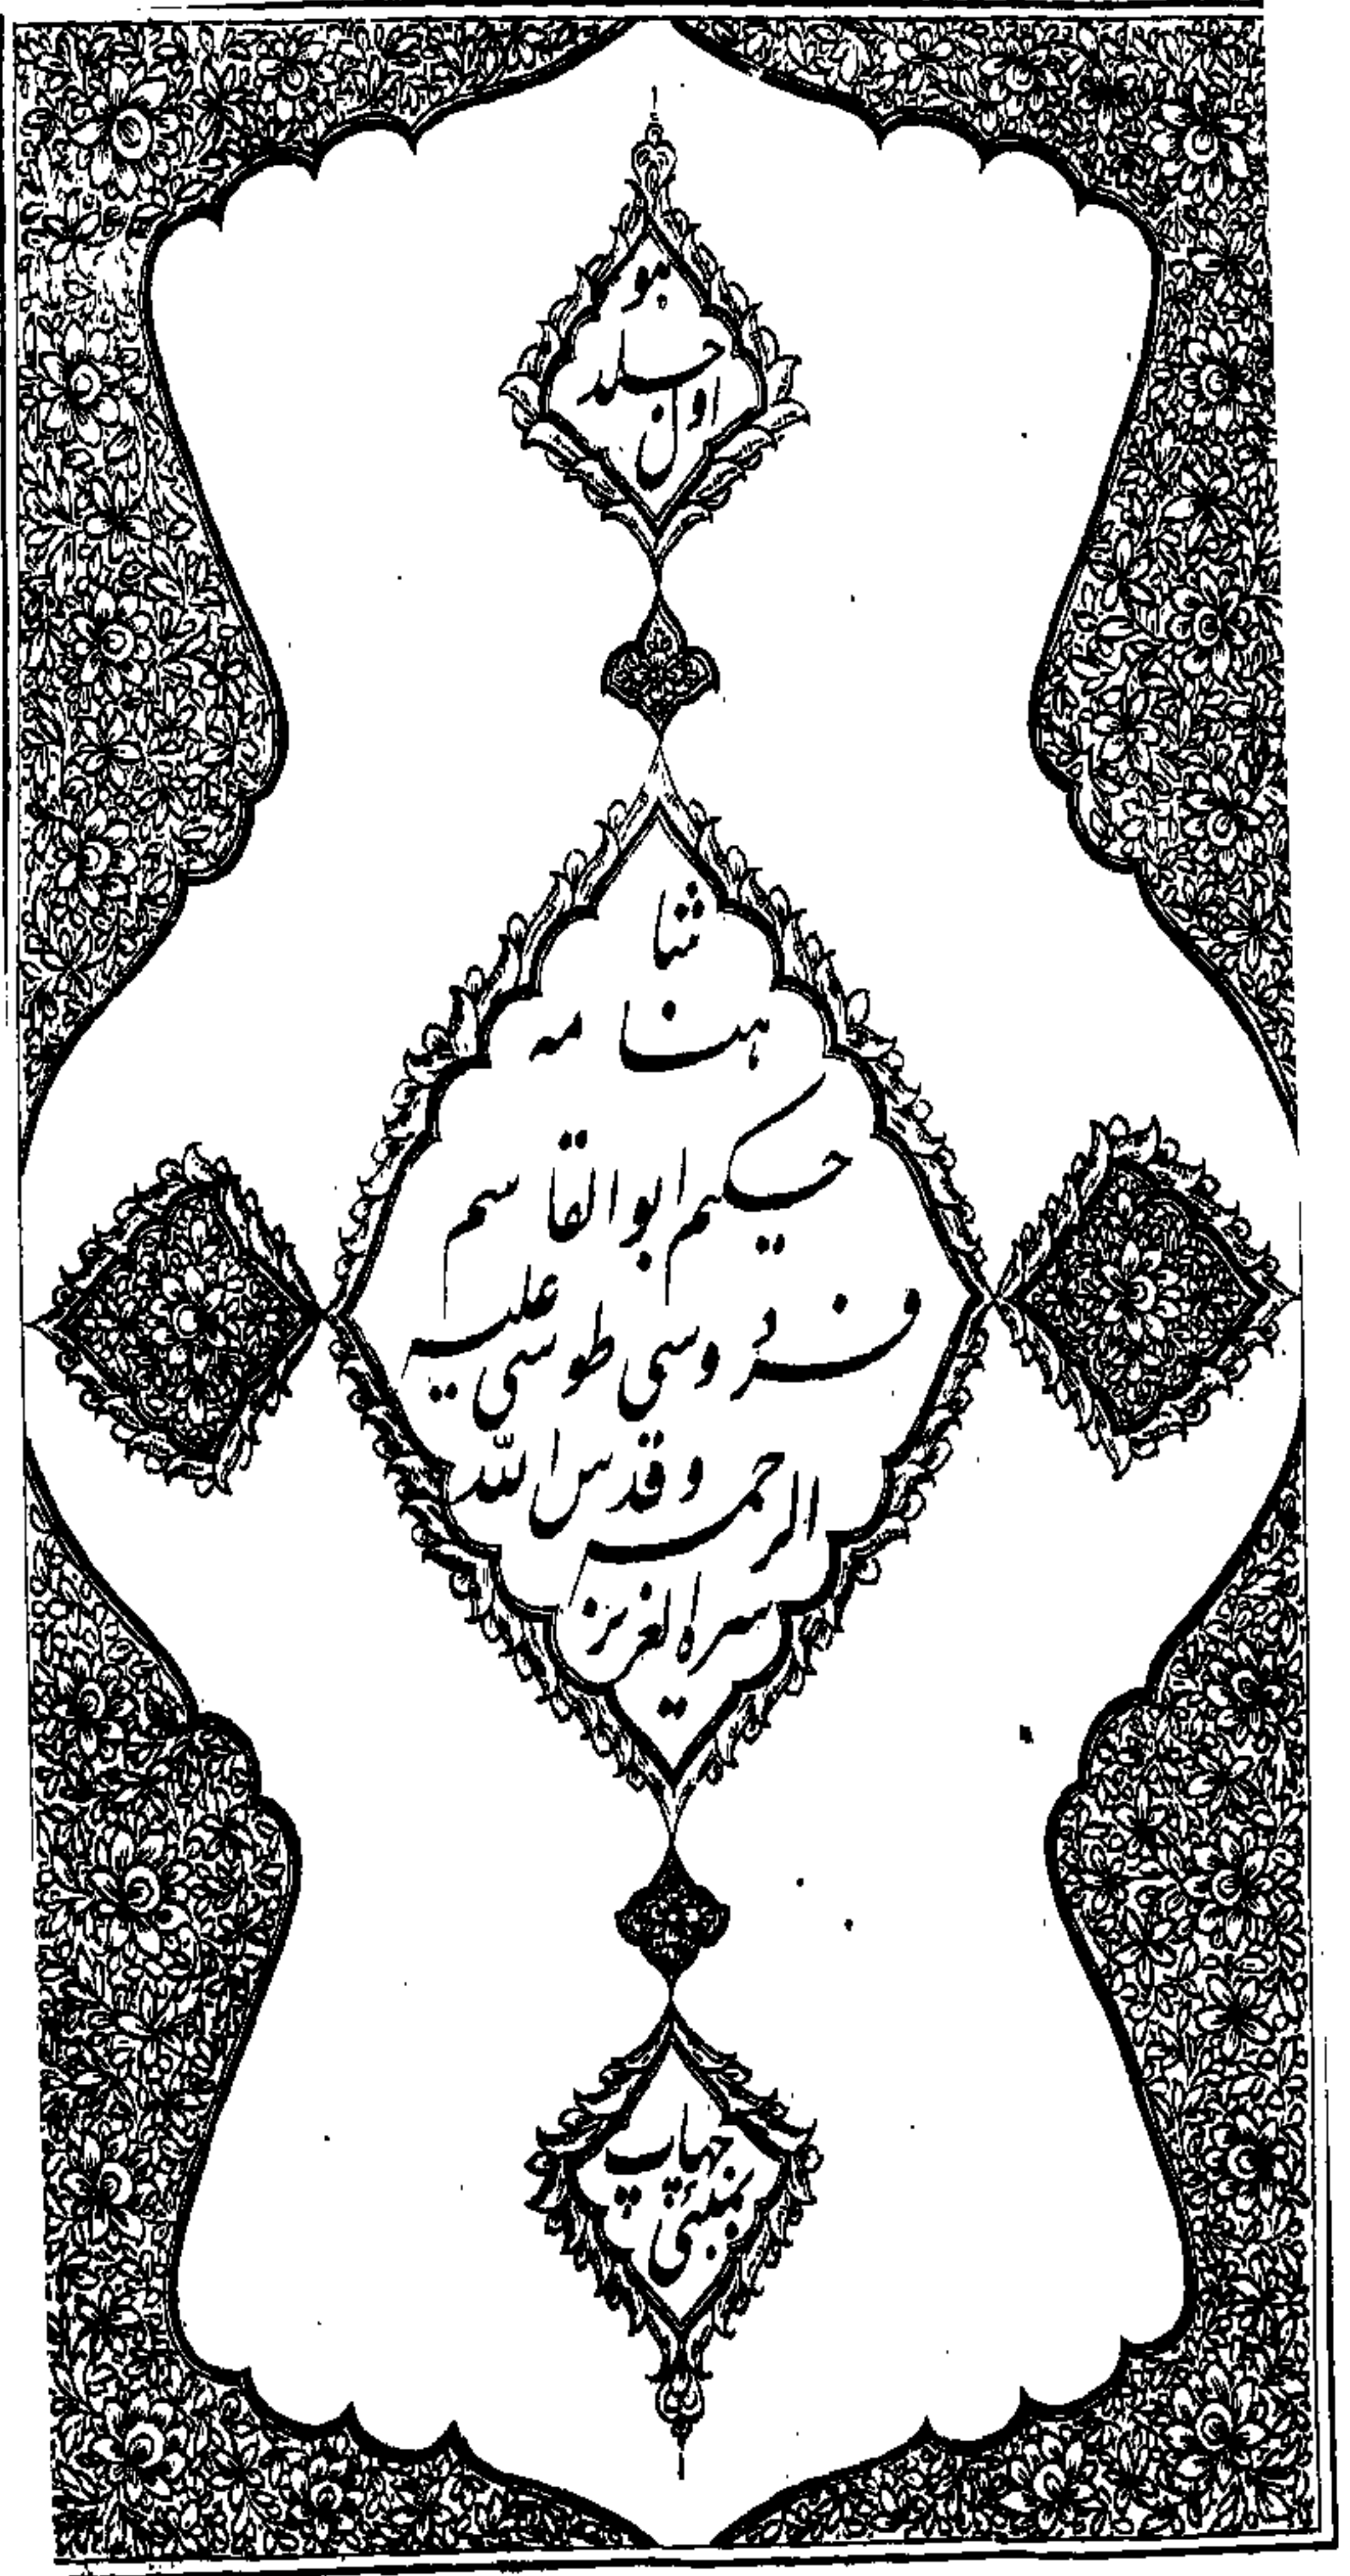 هو
جلد
اول
شا
هنامه
حکیم ابوالقاسم
فردوسی طوسی علیه
الرحمه و قدس الله
سره العزیز
چهاپ
بمبئی